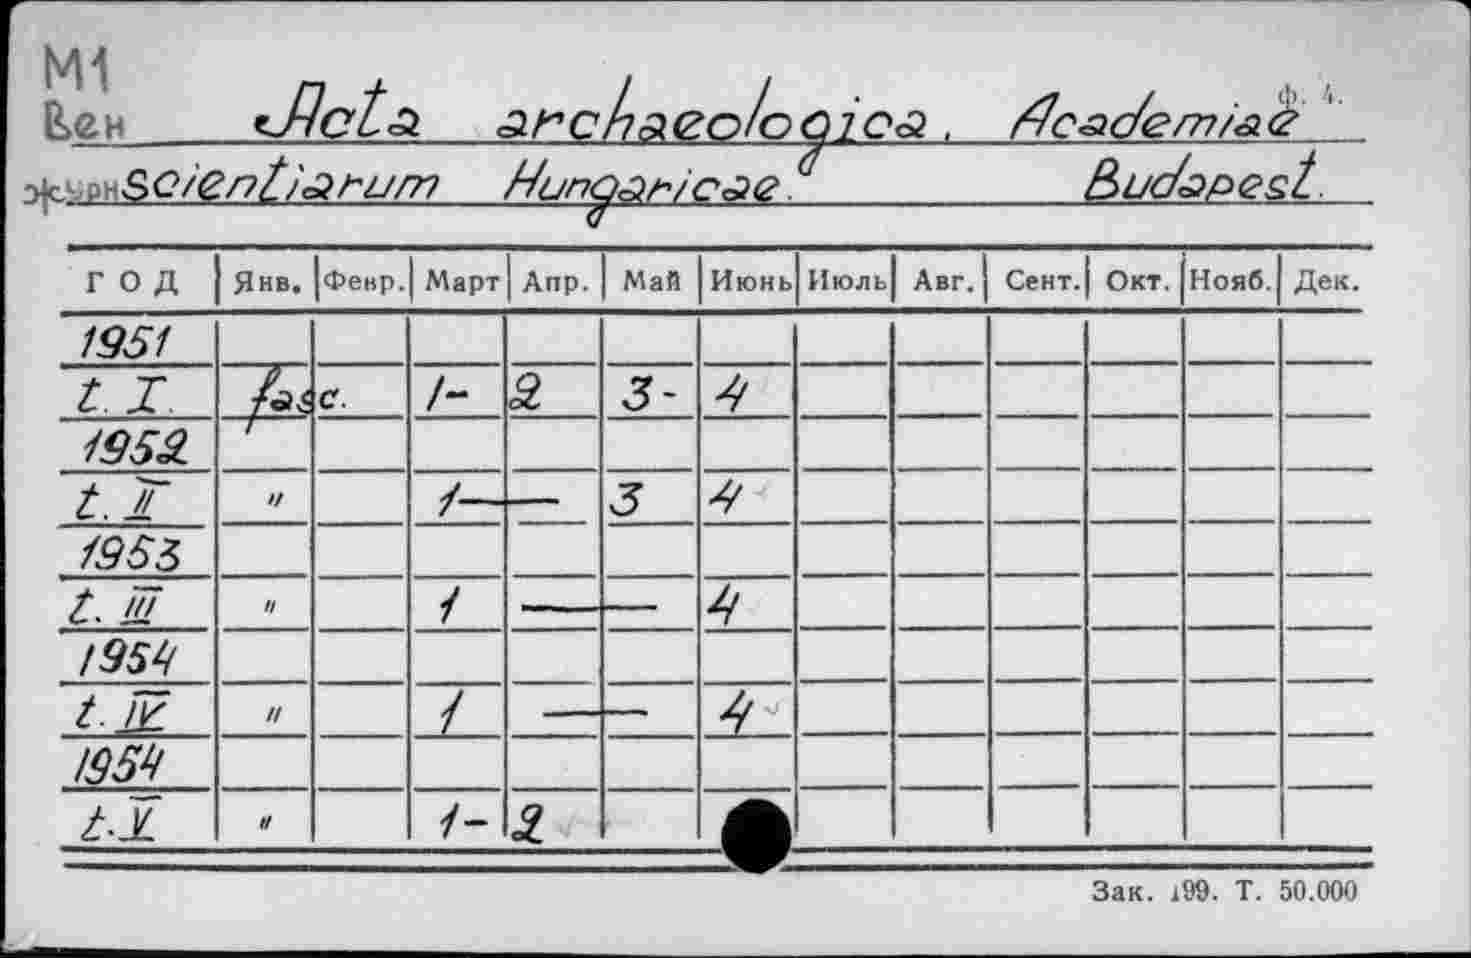 М1
Вен Acta archaeologica. Academiae ф. 4.
журн scientiarum Hungaricae. Budapest.
ГОД Янв. Февр. Март Апр. Май Июнь Июль Авг. Сент. Окт. Нояб. Дек.
1951
t. I. fasc. 1- 2 3- 4
1952
t. II " 1— — 3 4
1953
t. III " 1 — — 4
1954
t. IV " 1 — — 4
1954
t. V " 1- 2
Зак. 199. Т. 50.000